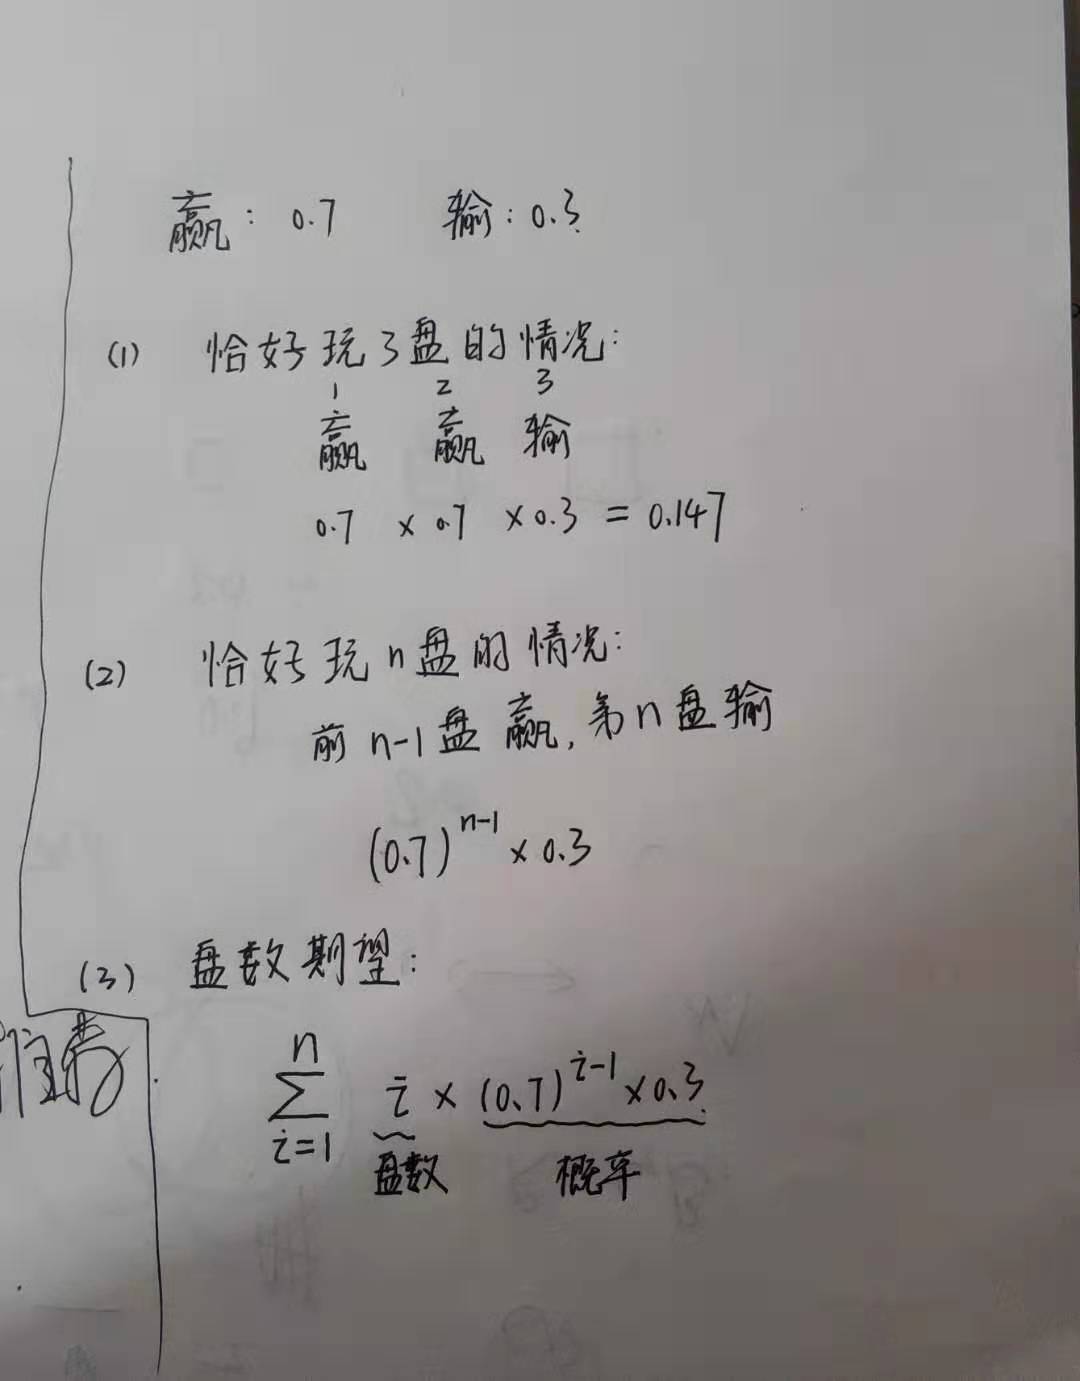 赢: 0.7 输: 0.3
(1) 恰好玩3盘的情况:
1 2 3
赢 赢 输
0.7 × 0.7 × 0.3 = 0.147
(2) 恰好玩n盘的情况:
前 n-1 盘赢, 第n盘输
(0.7)^{n-1} × 0.3
(3) 盘数期望:
n
∑ i × (0.7)^{i-1} × 0.3
i=1
盘数 概率